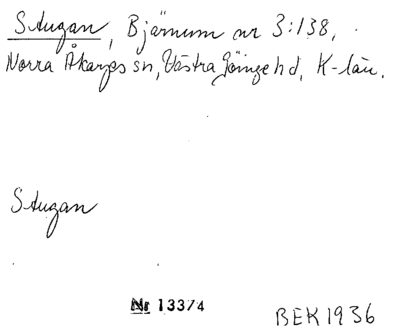 Stugan, Bjärnum nr 3:138,
Norra Åkarps sn, Västra Göinge hd, K-län.
Stugan
Nr 13374
BEK 1936